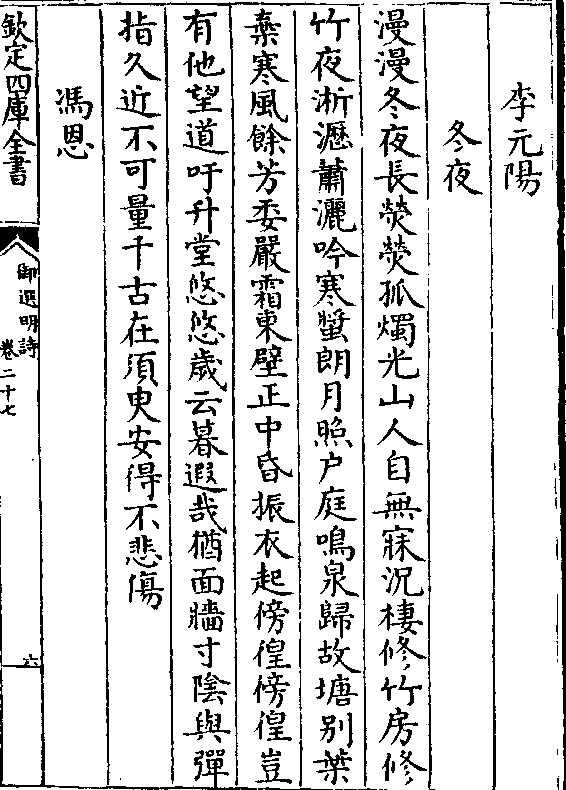 李元陽
冬夜
漫漫冬夜長熒熒孤燭光山人自無寐況棲修竹房修
竹夜淅瀝蕭灑吟寒螿朗月照户庭鳴泉歸故塘别葉
棄寒風餘芳委嚴霜東壁正中昏振衣起傍徨傍徨豈
有他望道吁升堂悠悠歲云暮遐哉猶面牆寸陰與彈
指久近不可量千古在須臾安得不悲傷
馮恩
欽定四庫全書
御選明詩
卷二十七
六